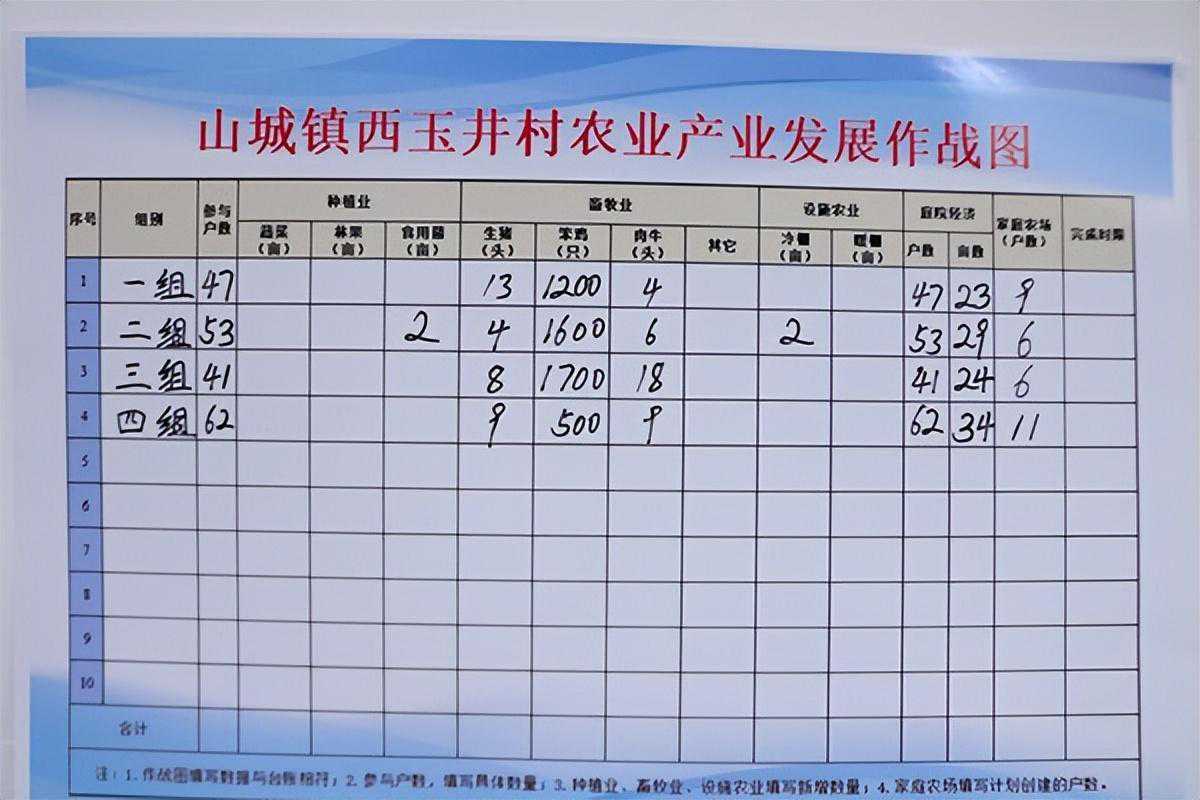 山城镇西玉井村农业产业发展作战图
序号 组别 参与户数 种植业 畜牧业 设施农业 庭院经济 家庭农场(户数) 完成时限
蔬菜(亩) 林果(亩) 食用菌(亩) 生猪(头) 笨鸡(只) 肉牛(头) 其它 冷棚(亩) 暖棚(亩) 户数 亩数
1 一组 47 13 1200 4 47 23 9
2 二组 53 2 4 1600 6 2 53 29 6
3 三组 41 8 1700 18 41 24 6
4 四组 62 9 500 9 62 34 11
5
6
7
8
9
10
合计
注:1.作战图填写数据与台账相符;2.参与户数,填写具体数量;3.种植业、畜牧业、设施农业填写新增数量;4.家庭农场填写计划创建的户数。